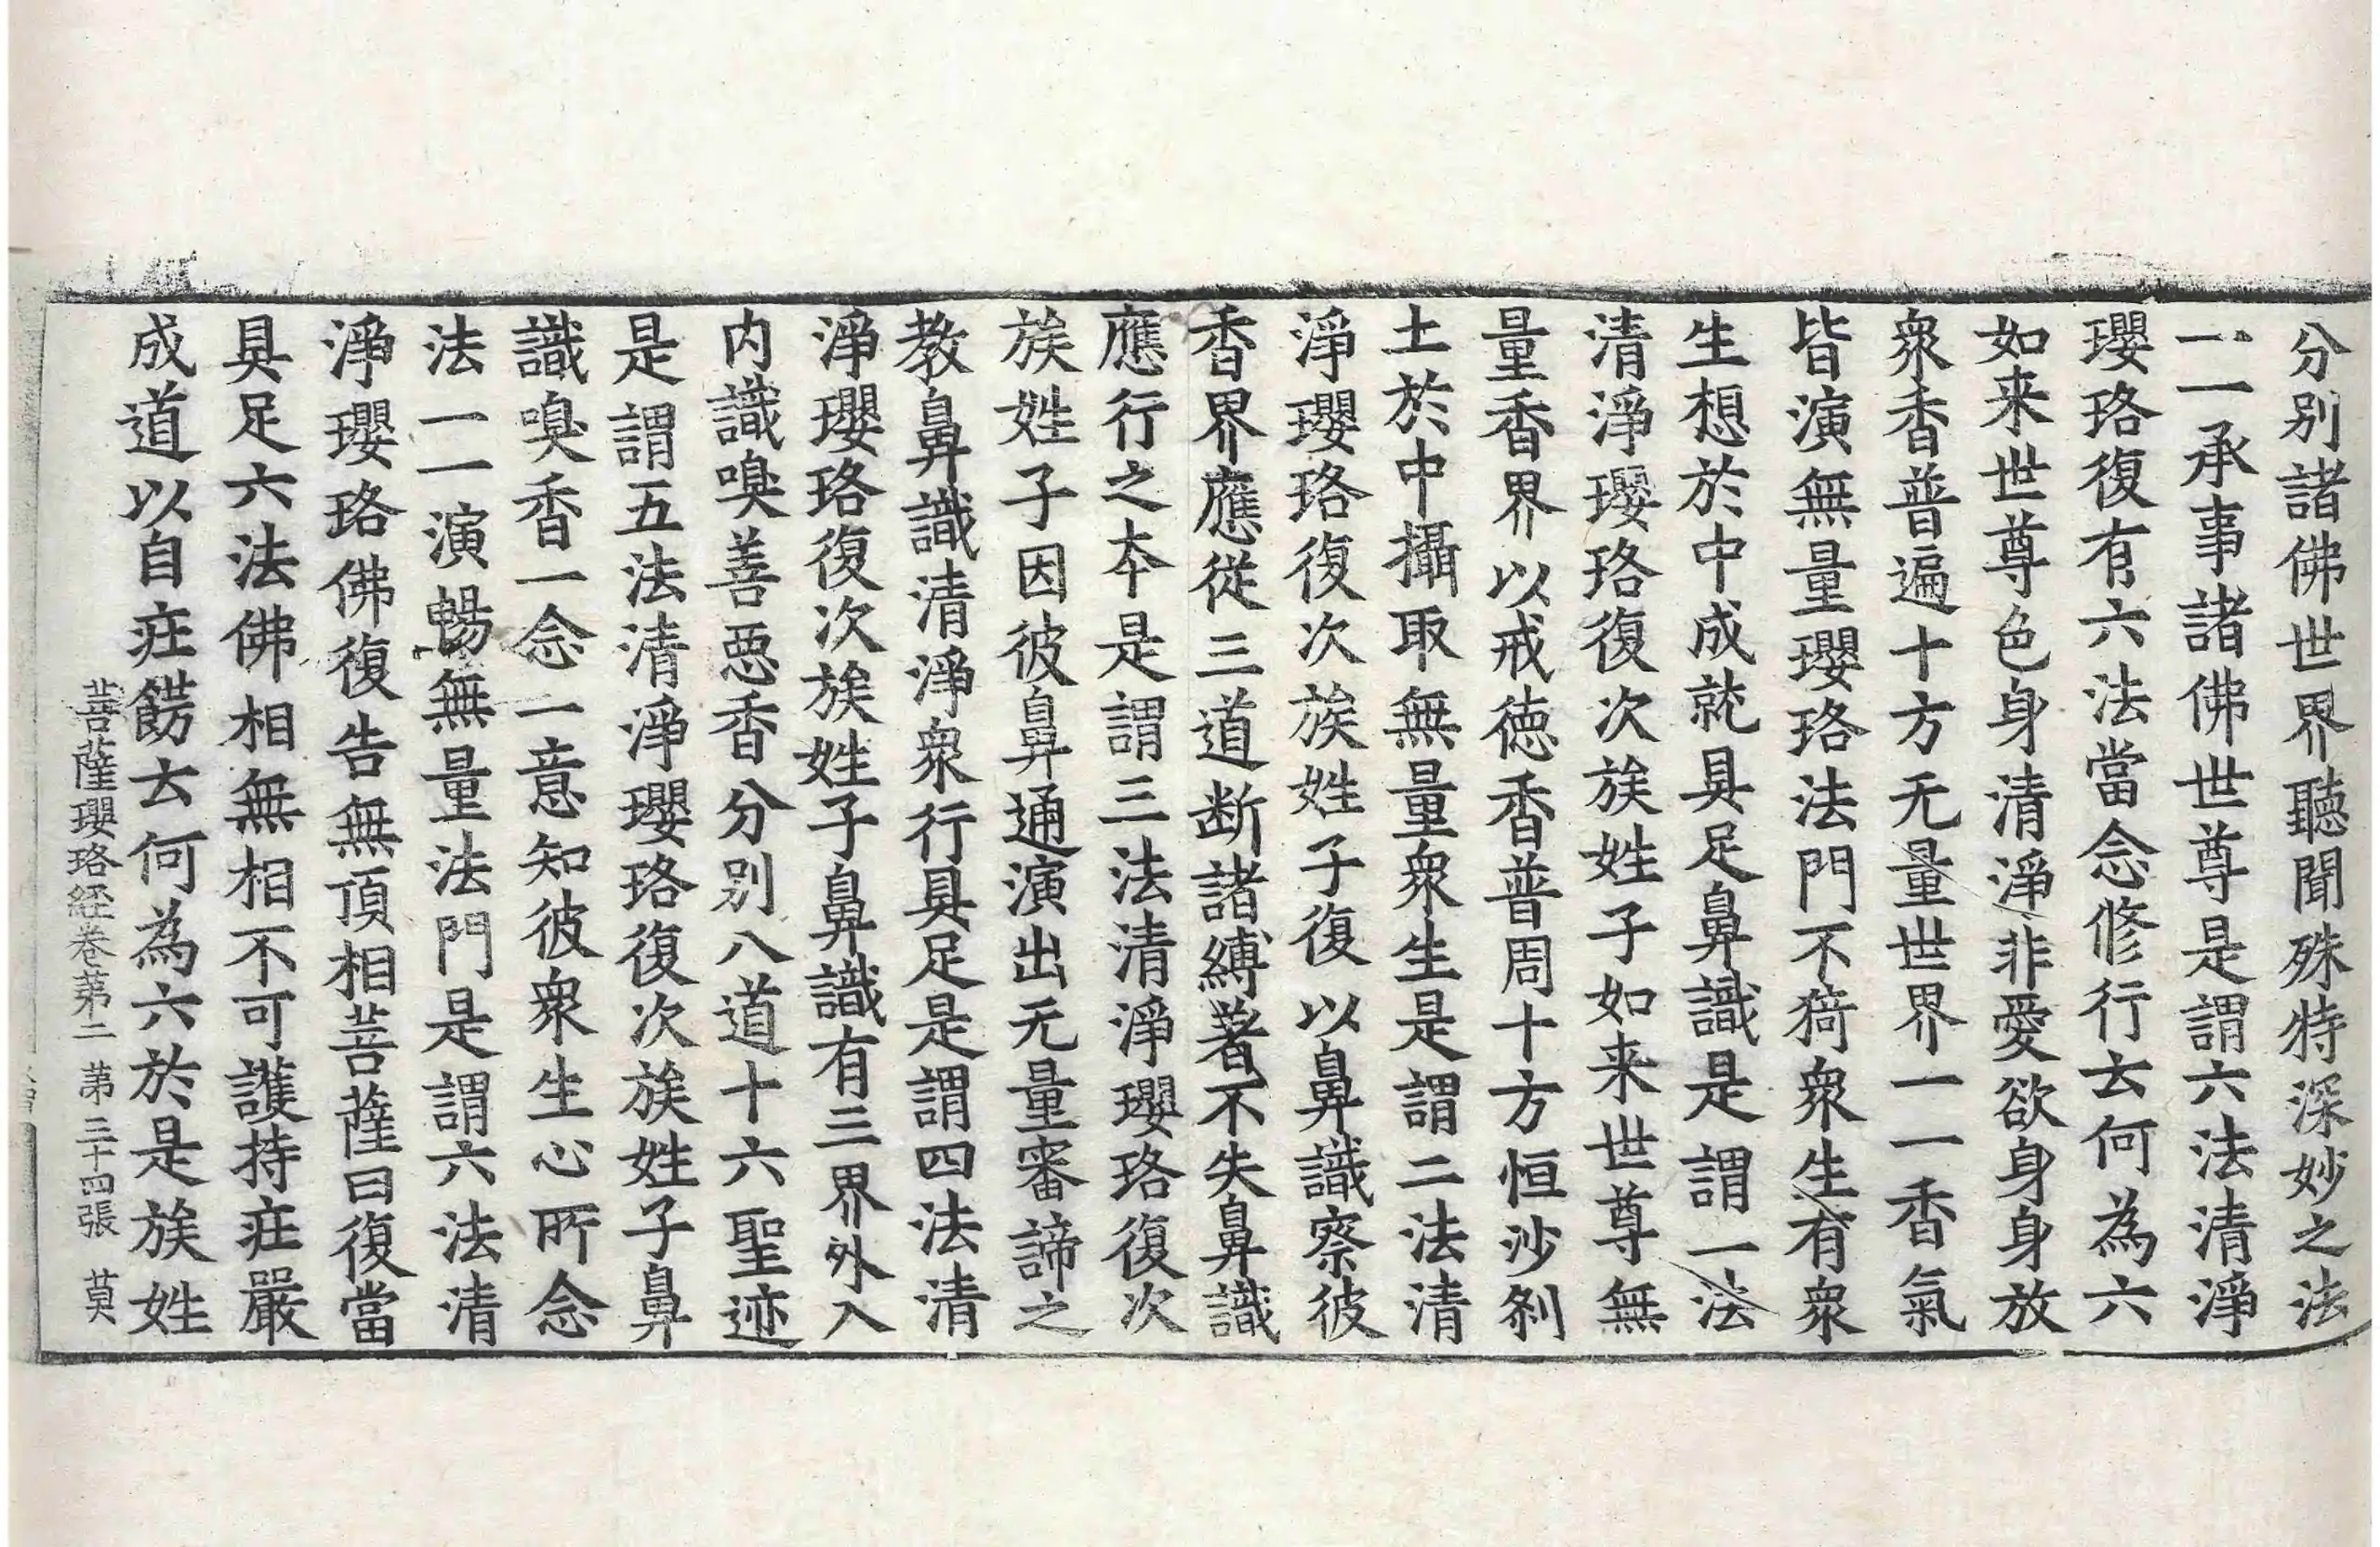 分别諸佛世界聽聞殊特深妙之法
一一承事諸佛世尊是謂六法清淨
瓔珞復有六法當念修行去何為六
如来世尊色身清淨非愛欲身身放
衆香普遍十方无量世界一一香氣
皆演無量瓔珞法門不猗衆生有衆
生想於中成就具足鼻識是謂一法
清淨瓔珞復次族姓子如来世尊無
量香界以戒德香普周十方恒沙刹
土於中攝取無量衆生是謂二法清
淨瓔珞復次族姓子復以鼻識察彼
香界應從三道断諸縛著不失鼻識
應行之本是謂三法清淨瓔珞復次
族姓子因彼鼻通演出无量審諦之
教鼻識清淨衆行具足是謂四法清
淨瓔珞復次族姓子鼻識有三界外入
内識嗅善惡香分别八道十六聖迹
是謂五法清淨瓔珞復次族姓子鼻
識嗅香一念一意知彼衆生心所念
法一一演暢無量法門是謂六法清
淨瓔珞佛復告無頂相菩薩曰復當
具足六法佛相無相不可護持莊嚴
成道以自莊餝去何為六於是族姓
菩薩瓔珞経卷苐二 苐三十四張 莫